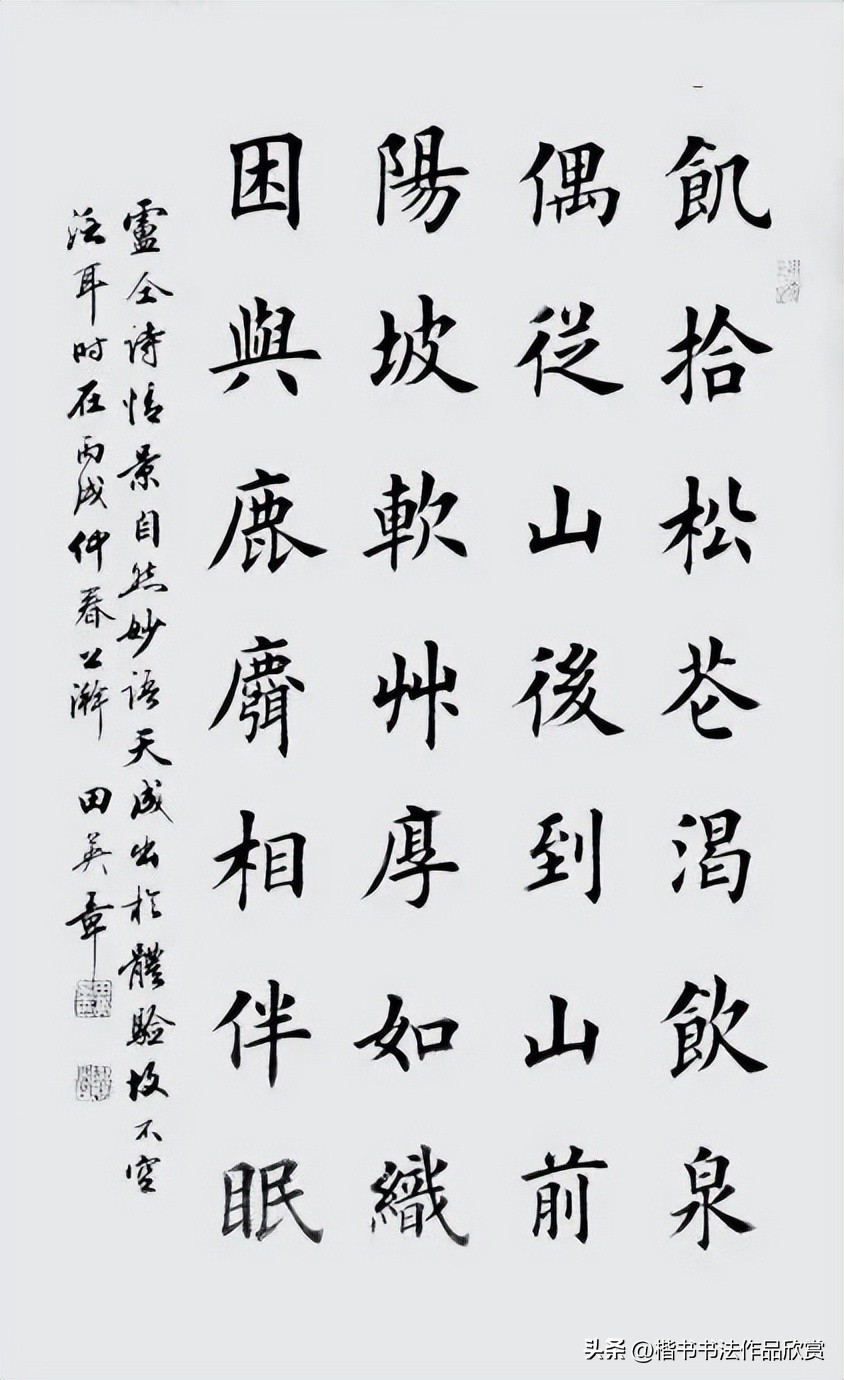 飢拾松花渴飲泉
偶從山後到山前
陽坡軟艸厚如織
困與鹿麛相伴眠
盧仝詩情景自然妙語天成出於體驗故不空
泛耳时在丙戌仲春上澣 田英章
头条 @楷书书法作品欣赏